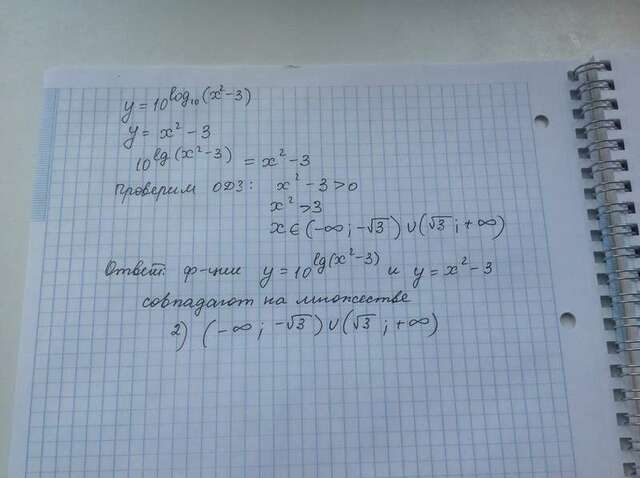 y = 10^log₁₀(x² - 3)
y = x² - 3
10^lg(x² - 3) = x² - 3
Проверим ОДЗ: x² - 3 > 0
x² > 3
x ∈ (-∞; -√3) ∪ (√3; +∞)
Ответ: ф-ции y = 10^lg(x² - 3) и y = x² - 3
совпадают на множестве
2) (-∞; -√3) ∪ (√3; +∞)